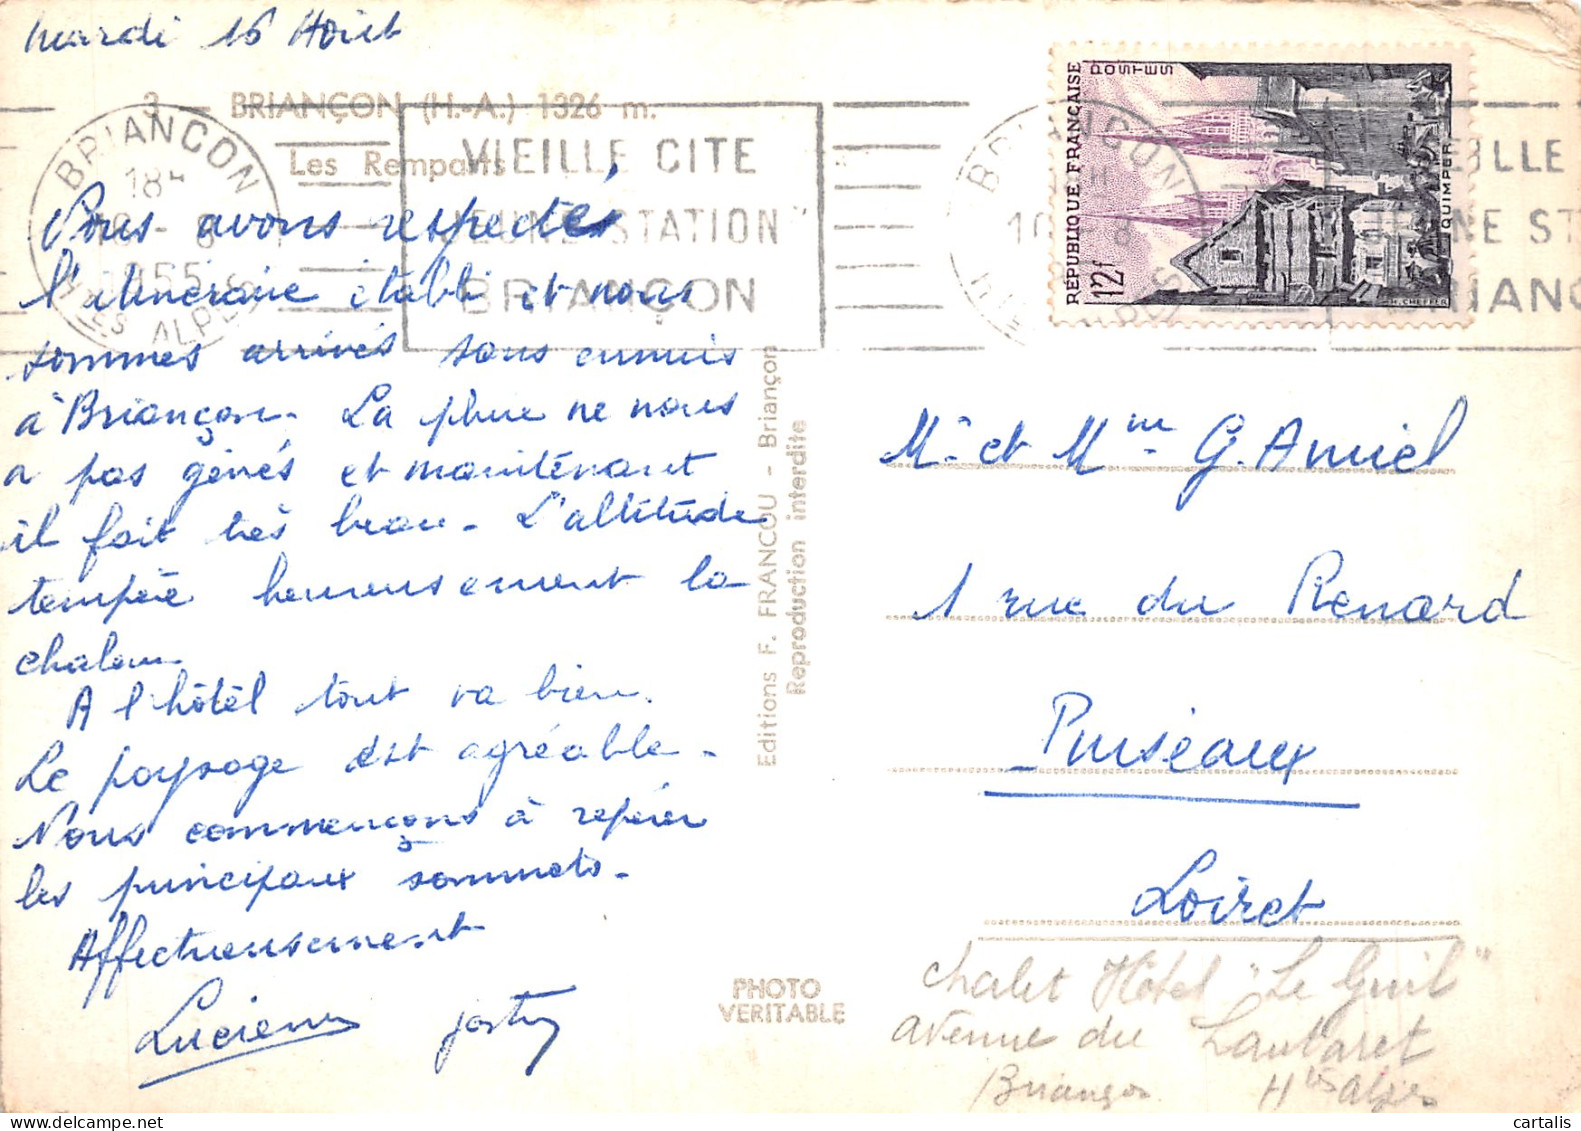 mardi 16 Août
3 - BRIANÇON (H.-A.) 1326 m.
Les Remparts
BRIANCON
18H
16 - 8
1955
HTES ALPES
VIEILLE CITE
JEUNE STATION
BRIANÇON
Nous avons respectés
l'itinéraire établi et nous
sommes arrivés sans ennuis
à Briançon. La pluie ne nous
a pas gênés et maintenant
il fait très beau. L'altitude
tempère heureusement la
chaleur
A l'hôtel tout va bien.
Le paysage est agréable.
Nous commençons à repérer
les principaux sommets.
Affectueusement
Lucienne
Editions F. FRANCOU - Briançon
Reproduction interdite
PHOTO
VERITABLE
REPUBLIQUE FRANÇAISE
POSTES
12f
QUIMPER
H. CHEFFER
BRIANCON
VIEILLE
JEUNE ST
BRIANÇ
Mr et Mme G. Amiel
1 rue du Renard
Puiseaux
Loiret
chalet Hôtel "Le Guil"
avenue du Lautaret
Briançon Htes Alpes
cartalis